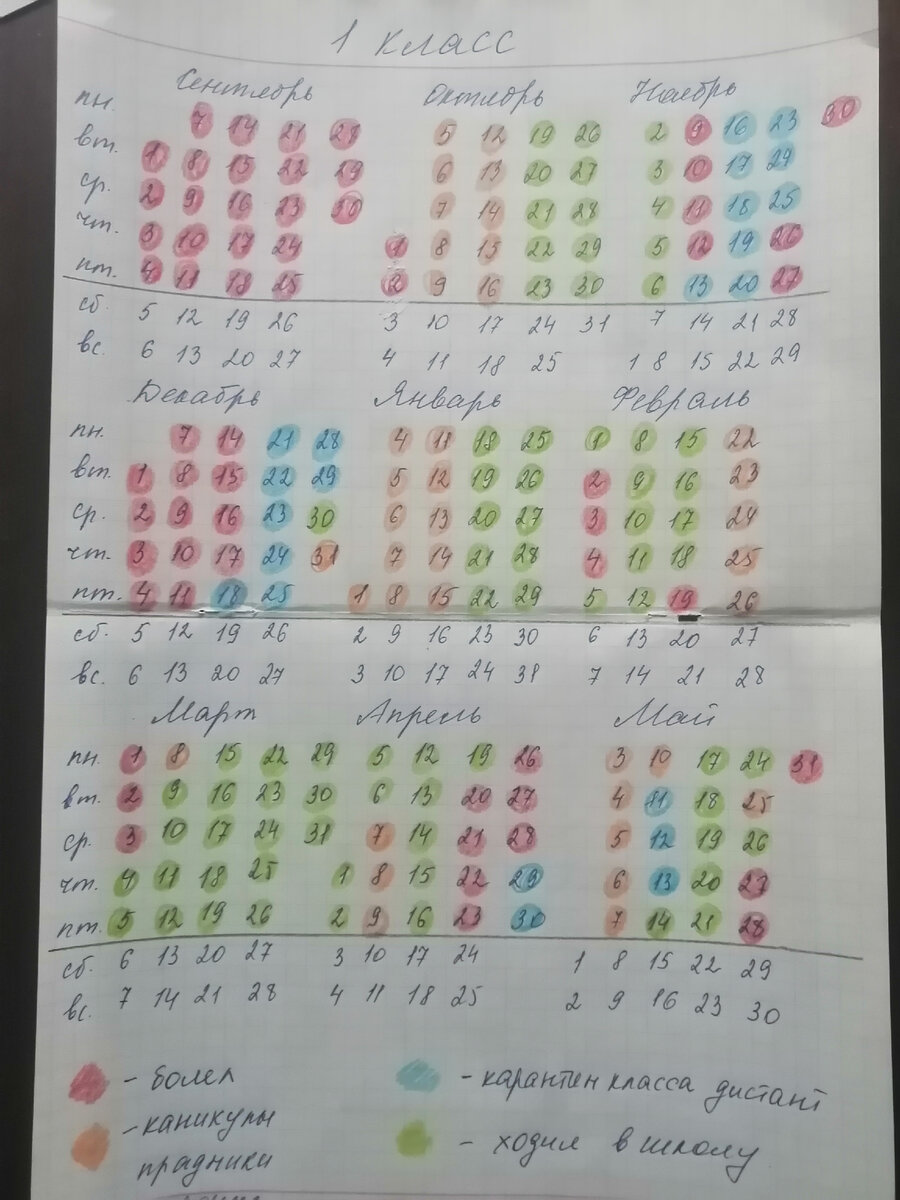 1 класс
Сентябрь Октябрь Ноябрь
пн. 7 14 21 28 5 12 19 26 2 9 16 23 30
вт. 1 8 15 22 29 6 13 20 27 3 10 17 24
ср. 2 9 16 23 30 7 14 21 28 4 11 18 25
чт. 3 10 17 24 1 8 15 22 29 5 12 19 26
пт. 4 11 18 25 2 9 16 23 30 6 13 20 27
сб. 5 12 19 26 3 10 17 24 31 7 14 21 28
вс. 6 13 20 27 4 11 18 25 1 8 15 22 29
Декабрь Январь Февраль
пн. 7 14 21 28 4 11 18 25 1 8 15 22
вт. 1 8 15 22 29 5 12 19 26 2 9 16 23
ср. 2 9 16 23 30 6 13 20 27 3 10 17 24
чт. 3 10 17 24 31 7 14 21 28 4 11 18 25
пт. 4 11 18 25 1 8 15 22 29 5 12 19 26
сб. 5 12 19 26 2 9 16 23 30 6 13 20 27
вс. 6 13 20 27 3 10 17 24 31 7 14 21 28
Март Апрель Май
пн. 1 8 15 22 29 5 12 19 26 3 10 17 24 31
вт. 2 9 16 23 30 6 13 20 27 4 11 18 25
ср. 3 10 17 24 31 7 14 21 28 5 12 19 26
чт. 4 11 18 25 1 8 15 22 29 6 13 20 27
пт. 5 12 19 26 2 9 16 23 30 7 14 21 28
сб. 6 13 20 27 3 10 17 24 1 8 15 22 29
вс. 7 14 21 28 4 11 18 25 2 9 16 23 30
- болел - карантен класса дистант
- каникулы - ходил в школу
прадники